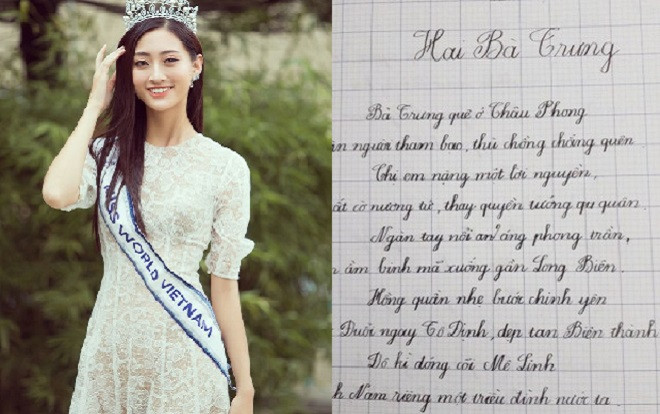 MISS WORLD VIETNAM
Hai Bà Trưng
Bà Trưng quê ở Châu Phong
người tham bạo, thù chồng chẳng quên
Chị em nặng một lời nguyền,
cờ nương tử, thay quyền tướng quân
Ngàn tây nổi áng phong trần,
ầm binh mã xuống gần Long Biên
Hồng quần nhẹ bước chinh yên
Đuổi ngay Tô Định, dẹp tan Biên thành
Đô kì đóng cõi Mê Linh
Nam riêng một triều đình nước ta.